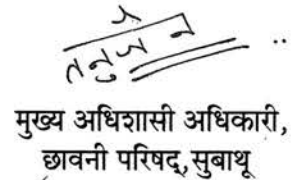 मुख्य अधिशासी अधिकारी,
छावनी परिषद्,सुबाथू